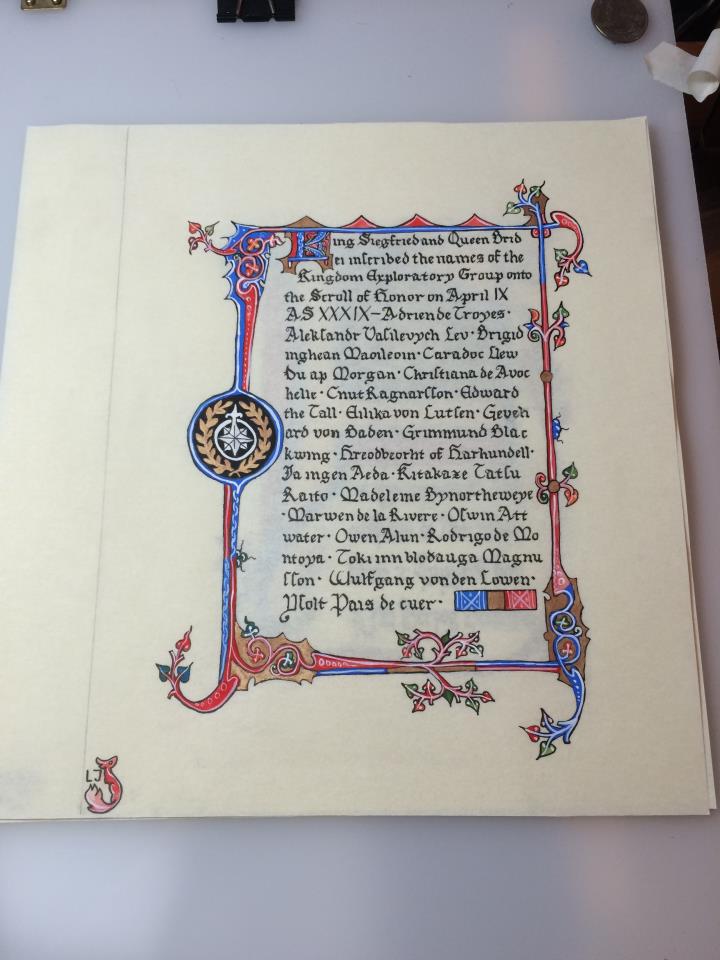 King Siegfried and Queen Brid
ei inscribed the names of the
Kingdom Exploratory Group onto
the Scroll of Honor on April IX
A.S XXXIX–Adrien de Troyes·
Aleksandr Vasilevych Lev·Brigid
inghean Maoileoin·Caradoc Llew
Du ap Morgan·Christiana de Avoc
helle·Cnut Ragnarsson·Edward
the Tall·Eilika von Lutsen·Geveh
ard von Baden·Grimmund Blac
kwing·Hreodbeorht of Harhundell·
Ia ingen Aeda·Kitakaze Tatsu
Raito·Madeleine Bynortheweye
·Marwen de la Rivere·Oswin Att
water·Owen Alun·Rodrigo de Mo
ntoya·Toki inn blodauga Magnu
sson·Wulfgang von den Lowen·
Ysolt Pais de cuer·
LJ